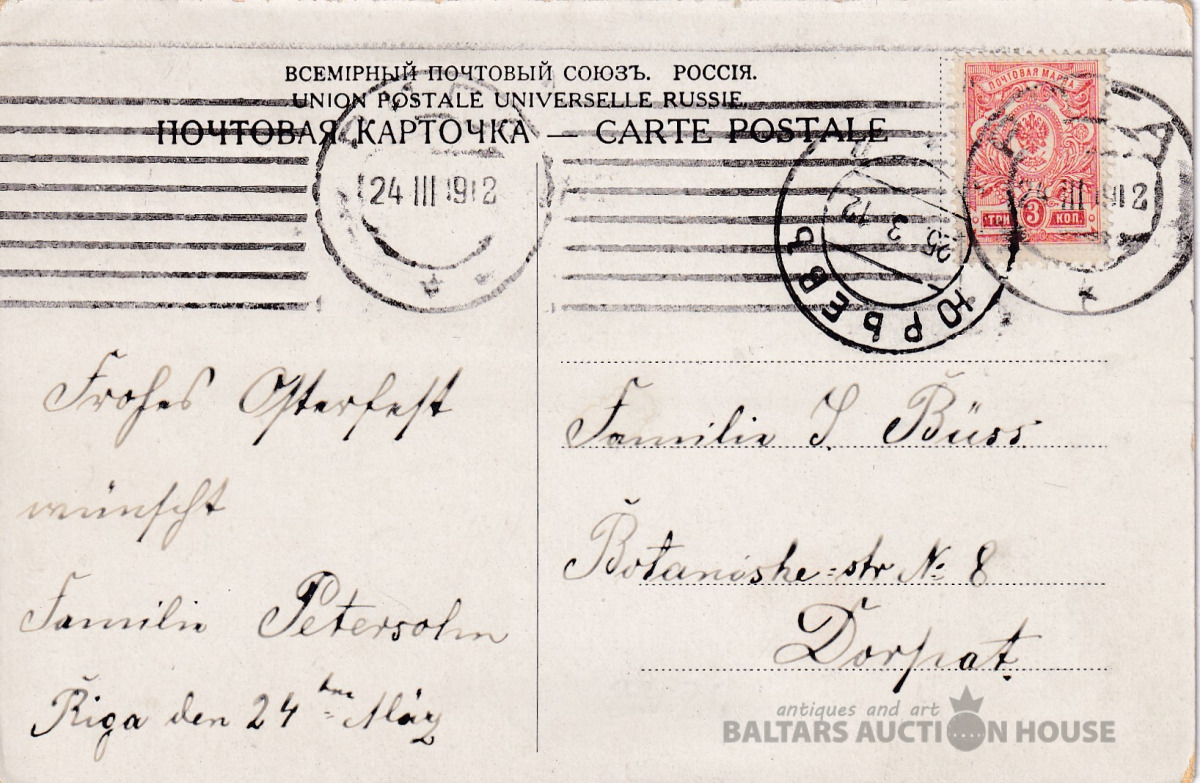 ВСЕМІРНЫЙ ПОЧТОВЫЙ СОЮЗЪ. РОССІЯ.
UNION POSTALE UNIVERSELLE RUSSIE.
ПОЧТОВАЯ КАРТОЧКА — CARTE POSTALE
ПОЧТОВАЯ МАРКА
ТРИ 3 КОП.
24 III 1912
24 III 1912
РИГА
ЮРЬЕВЪ
25 3 12
Frohes Osterfest
wünscht
Familie Petersohn
Riga den 24 März
Familie J Büss
Botanishe=str № 8
Dorpat
antiques and art
BALTARS AUCTION HOUSE